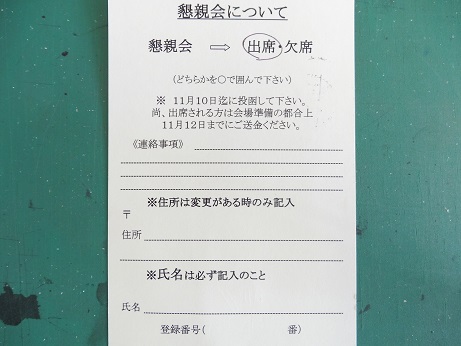 懇親会について
懇親会 ⇨ 出席・欠席
(どちらかを○で囲んで下さい)
※ 11月10日迄に投函して下さい。
尚、出席される方は会場準備の都合上
11月12日までにご送金ください。
《連絡事項》
※住所は変更がある時のみ記入
〒
住所
※氏名は必ず記入のこと
氏名
登録番号( 番)